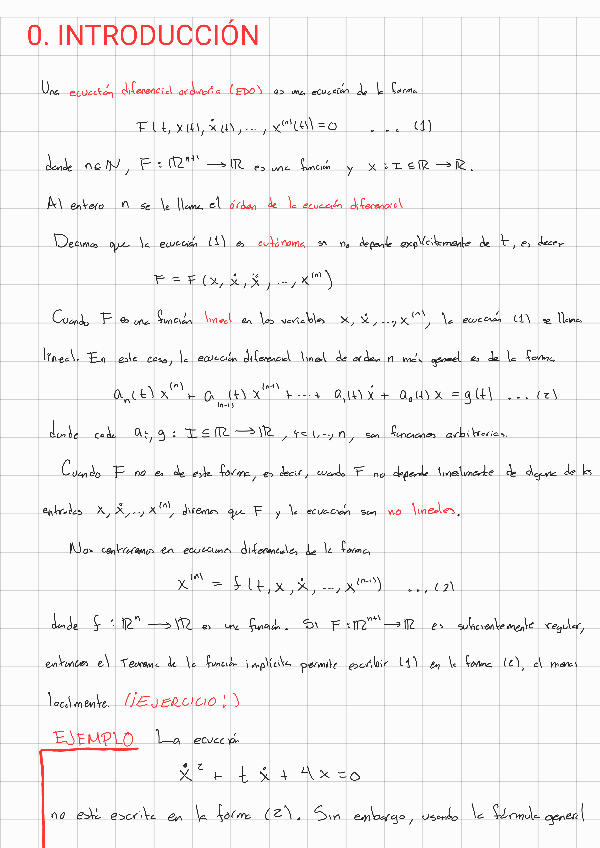 0. INTRODUCCIÓN
Una ecuación diferencial ordinaria (EDO) es una ecuación de la forma
F(t, x(t), ẋ(t), ..., x⁽ⁿ⁾(t)) = 0 ... (1)
donde n∈ℕ, F : ℝⁿ⁺¹ → ℝ es una función y x : I ⊆ ℝ → ℝ.
Al entero n se le llama el órden de la ecuación diferencial
Decimos que la ecuación (1) es autónoma si no depende explícitamente de t, es decir
F = F(x, ẋ, ẍ, ..., x⁽ⁿ⁾)
Cuando F es una función lineal en las variables x, ẋ, ..., x⁽ⁿ⁾, la ecuación (1) se llama
lineal. En este caso, la ecuación diferencial lineal de orden n más general es de la forma
aₙ(t) x⁽ⁿ⁾ + a₍ₙ₋₁₎(t) x⁽ⁿ⁻¹⁾ + ... + a₁(t) ẋ + a₀(t) x = g(t) ... (2)
donde cada aᵢ, g : I ⊆ ℝ → ℝ, i = 1, ..., n, son funciones arbitrarias.
Cuando F no es de esta forma, es decir, cuando F no depende linealmente de alguna de las
entradas x, ẋ, ..., x⁽ⁿ⁾, diremos que F y la ecuación son no lineales.
Nos centraremos en ecuaciones diferenciales de la forma
x⁽ⁿ⁾ = f(t, x, ẋ, ..., x⁽ⁿ⁻¹⁾) ... (2)
donde f : ℝⁿ → ℝ es una función. Si F : ℝⁿ⁺¹ → ℝ es suficientemente regular,
entonces el Teorema de la función implícita permite escribir (1) en la forma (2), al menos
localmente. (¡EJERCICIO!)
EJEMPLO La ecuación
ẋ² + t ẋ + 4x = 0
no está escrita en la forma (2). Sin embargo, usando la fórmula general